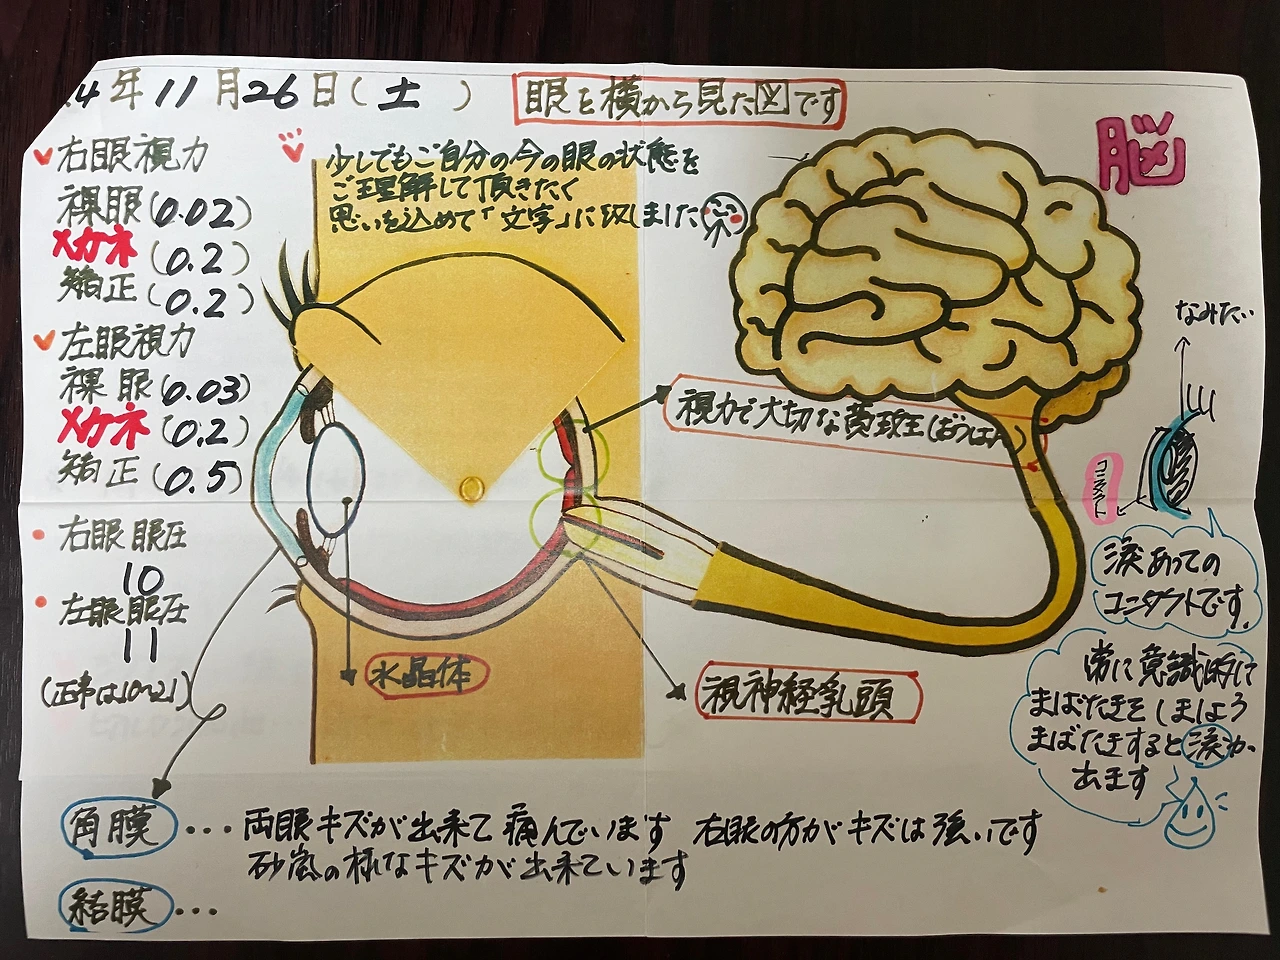 .4年11月26日(土)
眼を横から見た図です
脳
右眼視力
裸眼(0.02)
メガネ(0.2)
矯正(0.2)
左眼視力
裸眼(0.03)
メガネ(0.2)
矯正(0.5)
右眼眼圧
10
左眼眼圧
11
(正常は10~21)
少しでもご自分の今の眼の状態を
ご理解して頂きたく
思いを込めて「文字」に収しました
視力で大切な黄斑(おうはん
水晶体
視神経乳頭
なみだ
コンタクト
涙あっての
コンタクトです。
常に意識的に
まばたきをしましょう
まばたきすると涙が
出ます
角膜・・・両眼キズが出来て痛んでいます 右眼の方がキズは強いです
砂嵐の様なキズが出来ています
結膜・・・